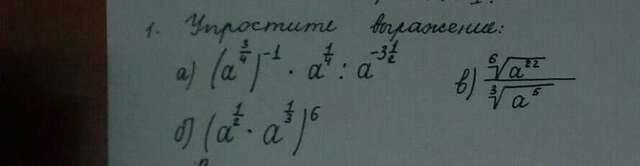 1. Упростите выражение:
а) (a^{3/4})^{-1} · a^{1/4} : a^{-3 1/2}
в) \frac{\sqrt[6]{a^{22}}}{\sqrt[3]{a^{5}}}
б) (a^{1/2} · a^{1/3})^6